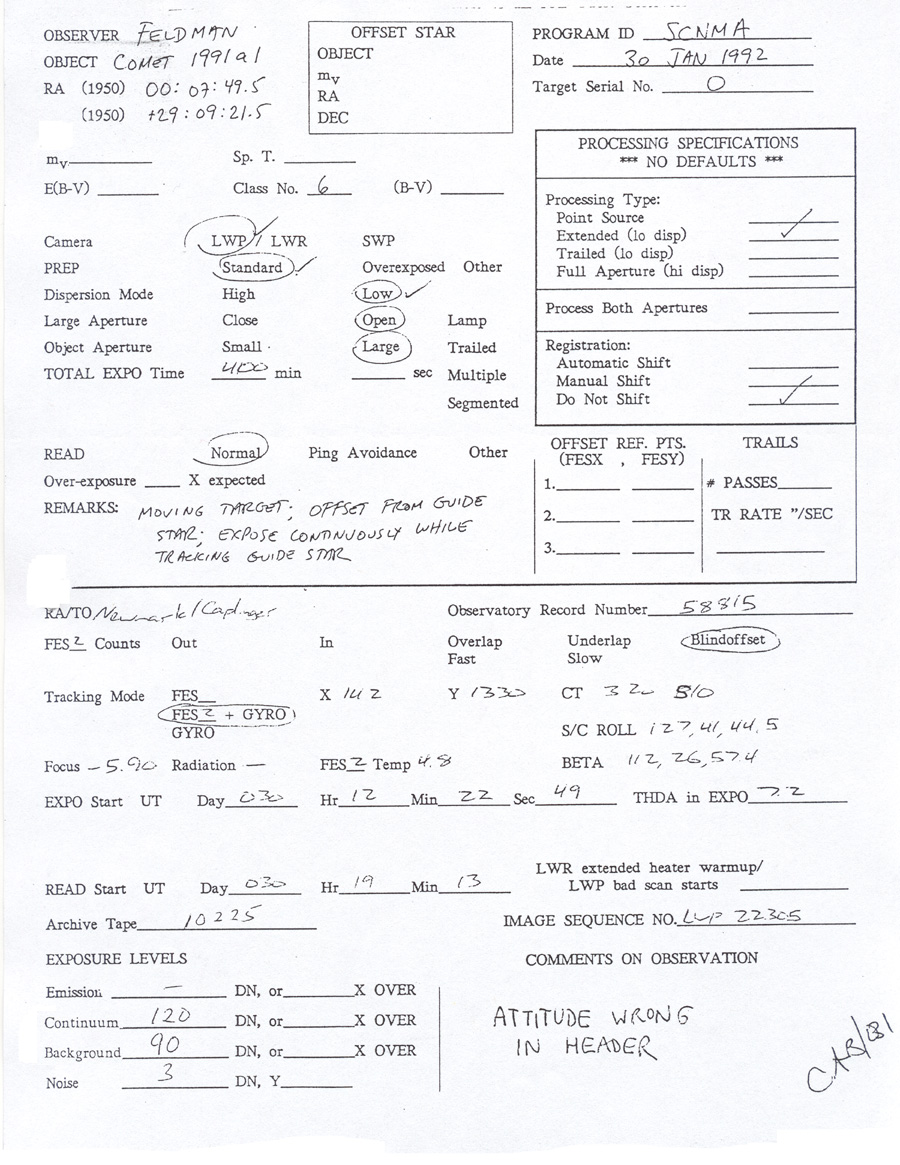 OBSERVER FELDMAN
OBJECT COMET 1991a1
RA (1950) 00:07:49.5
(1950) +29:09:21.5
OFFSET STAR
OBJECT
mv
RA
DEC
PROGRAM ID SCNMA
Date 30 JAN 1992
Target Serial No. 0
mv Sp. T.
E(B-V) Class No. 6 (B-V)
Camera LWP / LWR SWP
PREP Standard Overexposed Other
Dispersion Mode High Low
Large Aperture Close Open Lamp
Object Aperture Small Large Trailed
TOTAL EXPO Time 400 min sec Multiple
Segmented
PROCESSING SPECIFICATIONS
*** NO DEFAULTS ***
Processing Type:
Point Source
Extended (lo disp)
Trailed (lo disp)
Full Aperture (hi disp)
Process Both Apertures
Registration:
Automatic Shift
Manual Shift
Do Not Shift
READ Normal Ping Avoidance Other
Over-exposure X expected
REMARKS: MOVING TARGET; OFFSET FROM GUIDE
STAR; EXPOSE CONTINUOUSLY WHILE
TRACKING GUIDE STAR
OFFSET REF. PTS.
(FESX , FESY)
1.
2.
3.
TRAILS
# PASSES
TR RATE "/SEC
RA/TO Newmark/Caplinger
Observatory Record Number 58815
FES 2 Counts Out In Overlap Underlap Blindoffset
Fast Slow
Tracking Mode FES X 142 Y 1330 CT 320 510
FES 2 + GYRO
GYRO
S/C ROLL 127,41,44.5
Focus -5.90 Radiation — FES 2 Temp 4.8 BETA 112,26,57.4
EXPO Start UT Day 030 Hr 12 Min 22 Sec 49 THDA in EXPO 7.2
READ Start UT Day 030 Hr 19 Min 13
LWR extended heater warmup/
LWP bad scan starts
Archive Tape 10225
IMAGE SEQUENCE NO. LWP 22305
EXPOSURE LEVELS
Emission — DN, or X OVER
Continuum 120 DN, or X OVER
Background 90 DN, or X OVER
Noise 3 DN, Y
COMMENTS ON OBSERVATION
ATTITUDE WRONG
IN HEADER